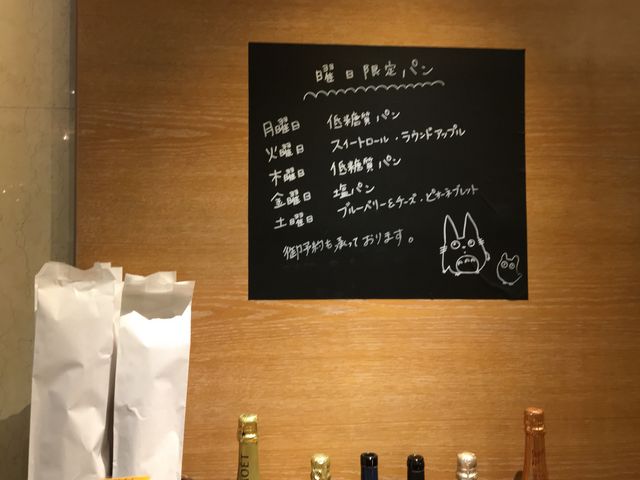 曜日限定パン
月曜日 低糖質パン
火曜日 スイートロール・ラウンドアップル
木曜日 低糖質パン
金曜日 塩パン
土曜日 ブルーベリー&チーズ・ピターネブレット
御予約も承っております。
MOET